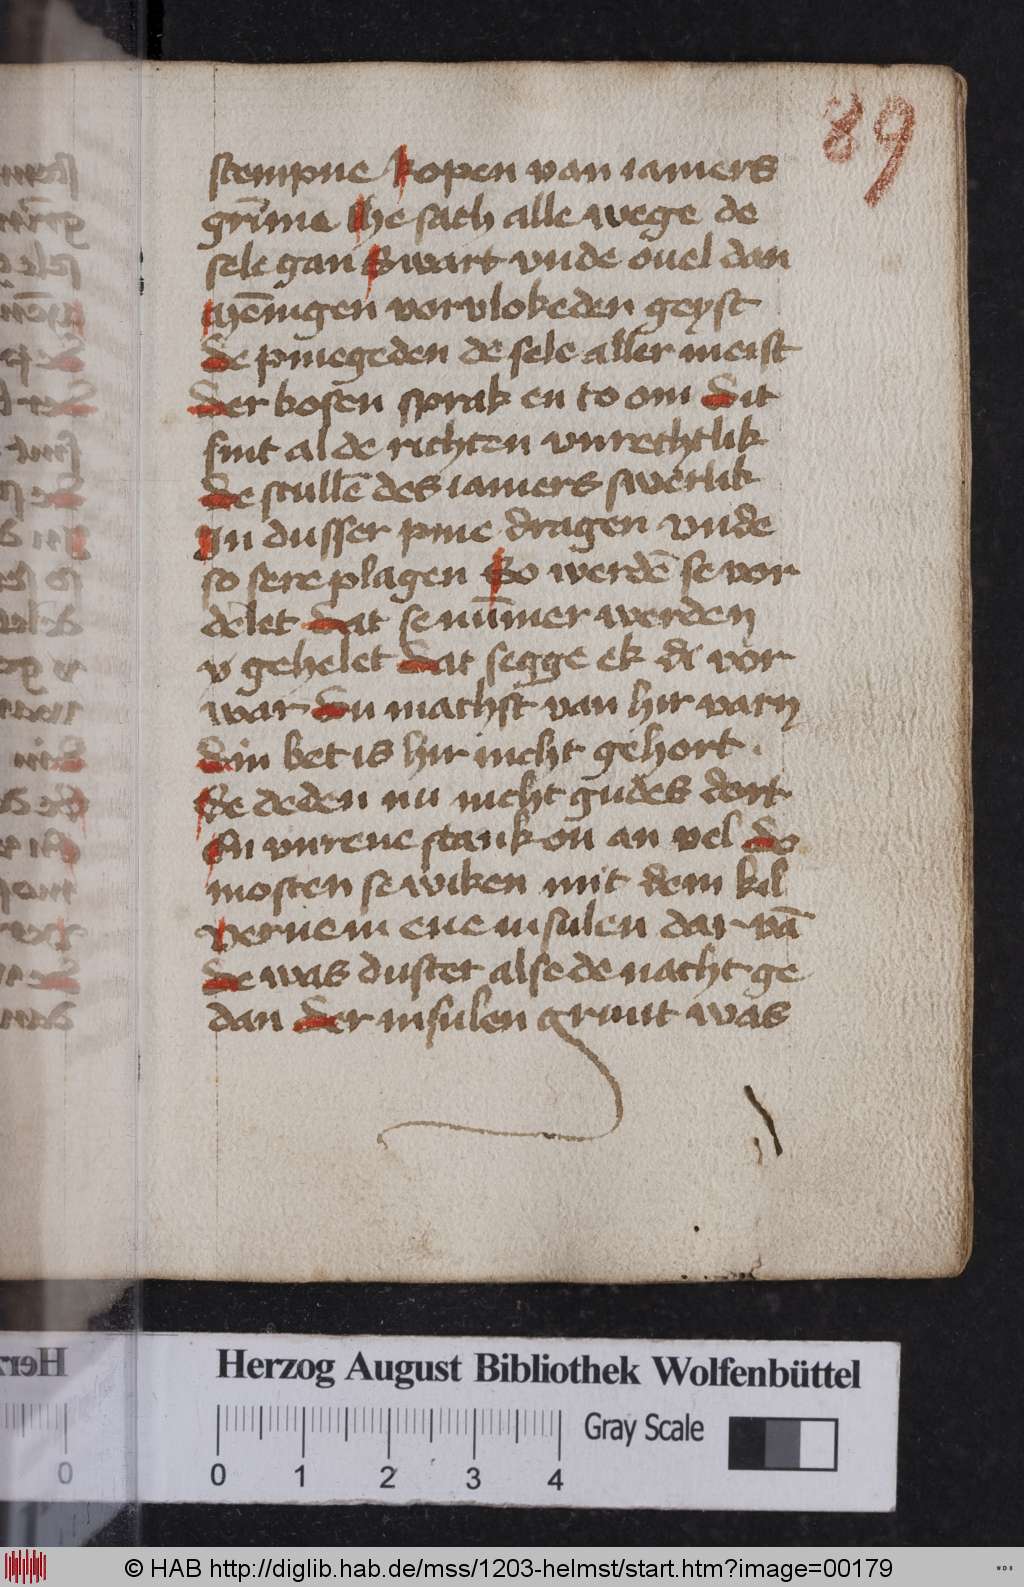 89
stempne Ropen van iamers
gri̅me The sach alle wege de
sele gan Swart vnde ouel dan
Me̅nigen vorvlokeden geyst
De pinegeden de sele aller meist
Der bosen sprak en to om Dit
sint al de richten vnrechtlik
De sculle̅ des iamers swerlik
In dusser pine dragen vnde
so sere plagen So werde̅ se vor
delet Dat se nu̅mer werden
v gehelet Dat segge ek di vor
war Du machst van hir varn
Din bet is hir nicht gehort
De deden nu nicht gudes dort
En vnrene stank on an vel Do
mosten se wiken mit dem kil
Verne in ene insulen dar va̅
De was duster alse de nacht ge
dan Der insulen grunt was
Herzog August Bibliothek Wolfenbüttel
0 1 2 3 4 Gray Scale
© HAB http://diglib.hab.de/mss/1203-helmst/start.htm?image=00179